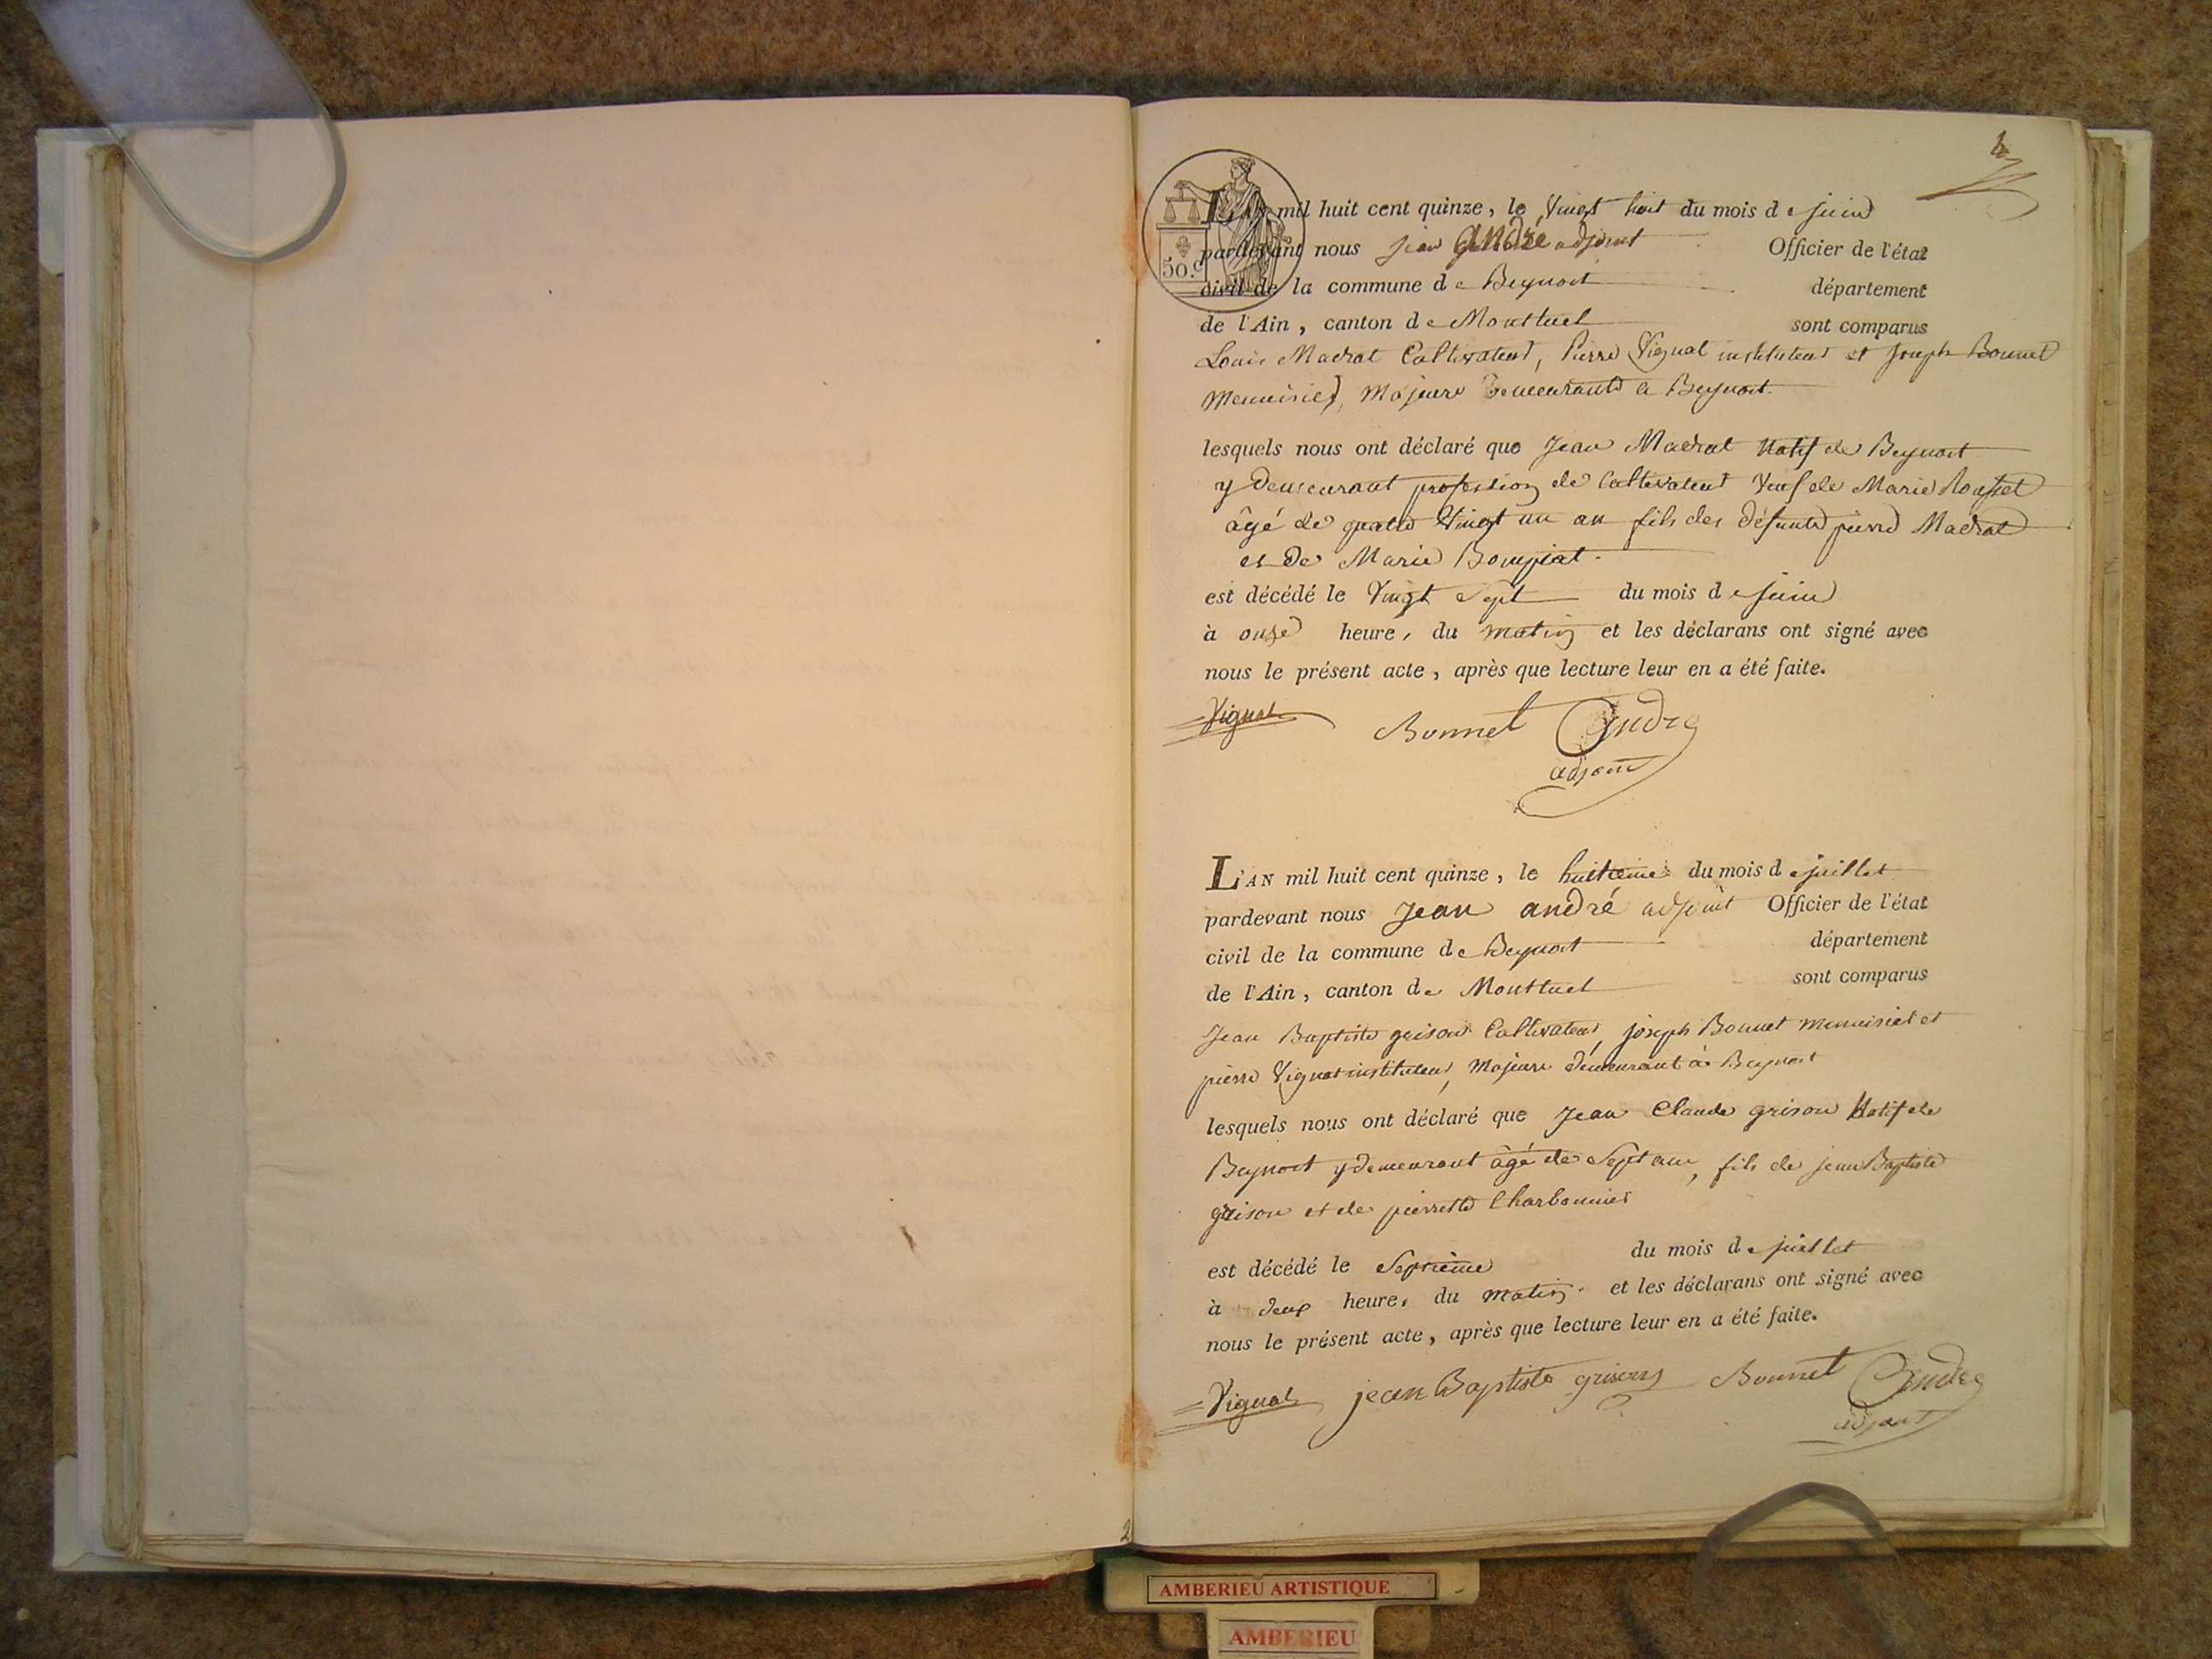 4
L'AN mil huit cent quinze, le vingt huit du mois de juin
pardevant nous jean andré adjoint Officier de l'état
civil de la commune de Beynost département
de l'Ain, canton de Montluel sont comparus
Louis Madrat Cultivateur, Pierre Vignat instituteur et Joseph Bonnet
Menuisier, Majeurs demeurants a Beynost
lesquels nous ont déclaré que Jean Madrat Natif de Beynost
y demeurant profession de Cultivateur Veuf de Marie
âgé de quatre vingt un an fils des défunts pierre Madrat
et de Marie Bompiat
est décédé le Vingt Sept du mois de juin
à onze heures du matin et les déclarans ont signé avec
nous le présent acte, après que lecture leur en a été faite.
Vignat Bonnet André
adjoint
50.c
L'AN mil huit cent quinze, le huitieme du mois de juillet
pardevant nous Jean andré adjoint Officier de l'état
civil de la commune de Beynost département
de l'Ain, canton de Montluel sont comparus
Jean Baptiste grison Cultivateur, joseph Bonnet menuisier et
pierre Vignat instituteur, Majeurs demeurant à Beynost
lesquels nous ont déclaré que Jean Claude grison Natif de
Beynost y demeurant âgé de Sept ans, fils de jean Baptiste
grison et de pierrette Charbonnier
est décédé le Septième du mois de juillet
à deux heures du matin et les déclarans ont signé avec
nous le présent acte, après que lecture leur en a été faite.
Vignat jean Baptiste grison Bonnet André
adjoint
2
AMBERIEU ARTISTIQUE
AMBERIEU